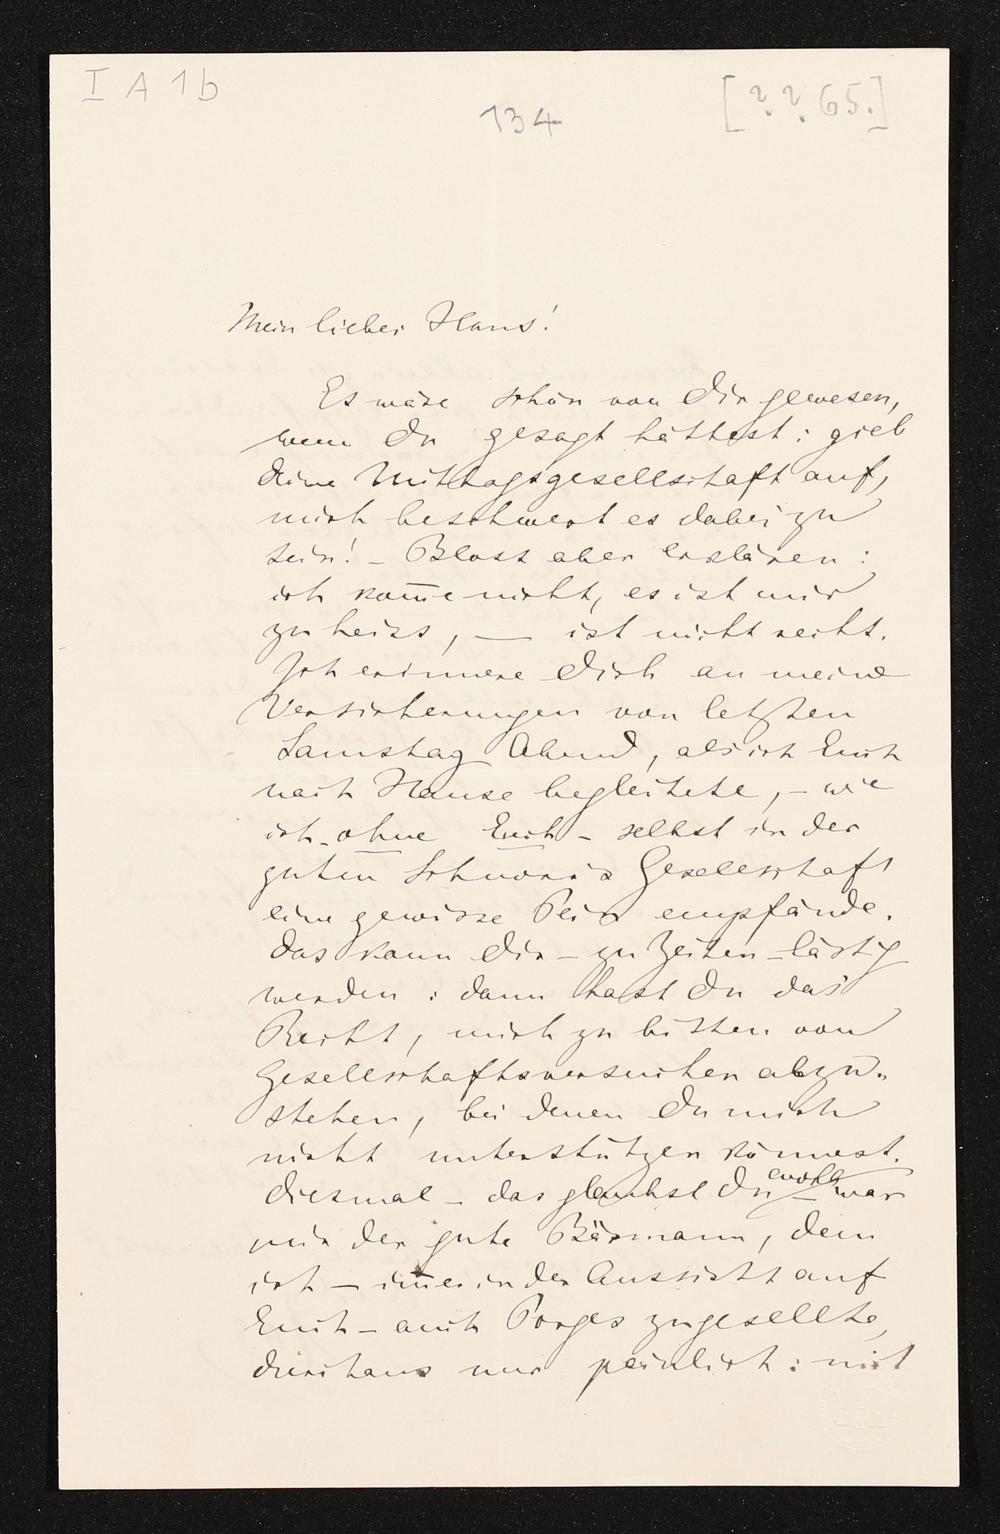 I A 1b
134
[?.?.65.]
Mein lieber Hans!
Es wäre schön von Dir gewesen,
wenn Du gesagt hättest: gieb
deine Mittagsgesellschaft auf,
mich beschwert es dabei zu
sein! – Bloss aber erklären:
ich kom̄e nicht, es ist mir
zu heiss, — ist nicht recht.
Ich erinnere Dich an meine
Versicherungen von letzten
Samstag Abend, als ich Euch
nach Hause begleitete, – wie
ich – ohne Euch – selbst in der
guten Schnorr's Gesellschaft
eine gewisse Pein empfände.
Das kann Dir – zu Zeiten – lästig
werden: dann hast Du das
Recht, mich zu bitten von
Gesellschaftsversuchen abzu-
stehen, bei denen Du mich
nicht unterstützen könnest.
Diesmal – das glaubst Du wohl – war
mir der gute Bärmann, dem
ich – im̄er in der Aussicht auf
Euch – auch Porges zugesellte,
durchaus nur peinlich: mit